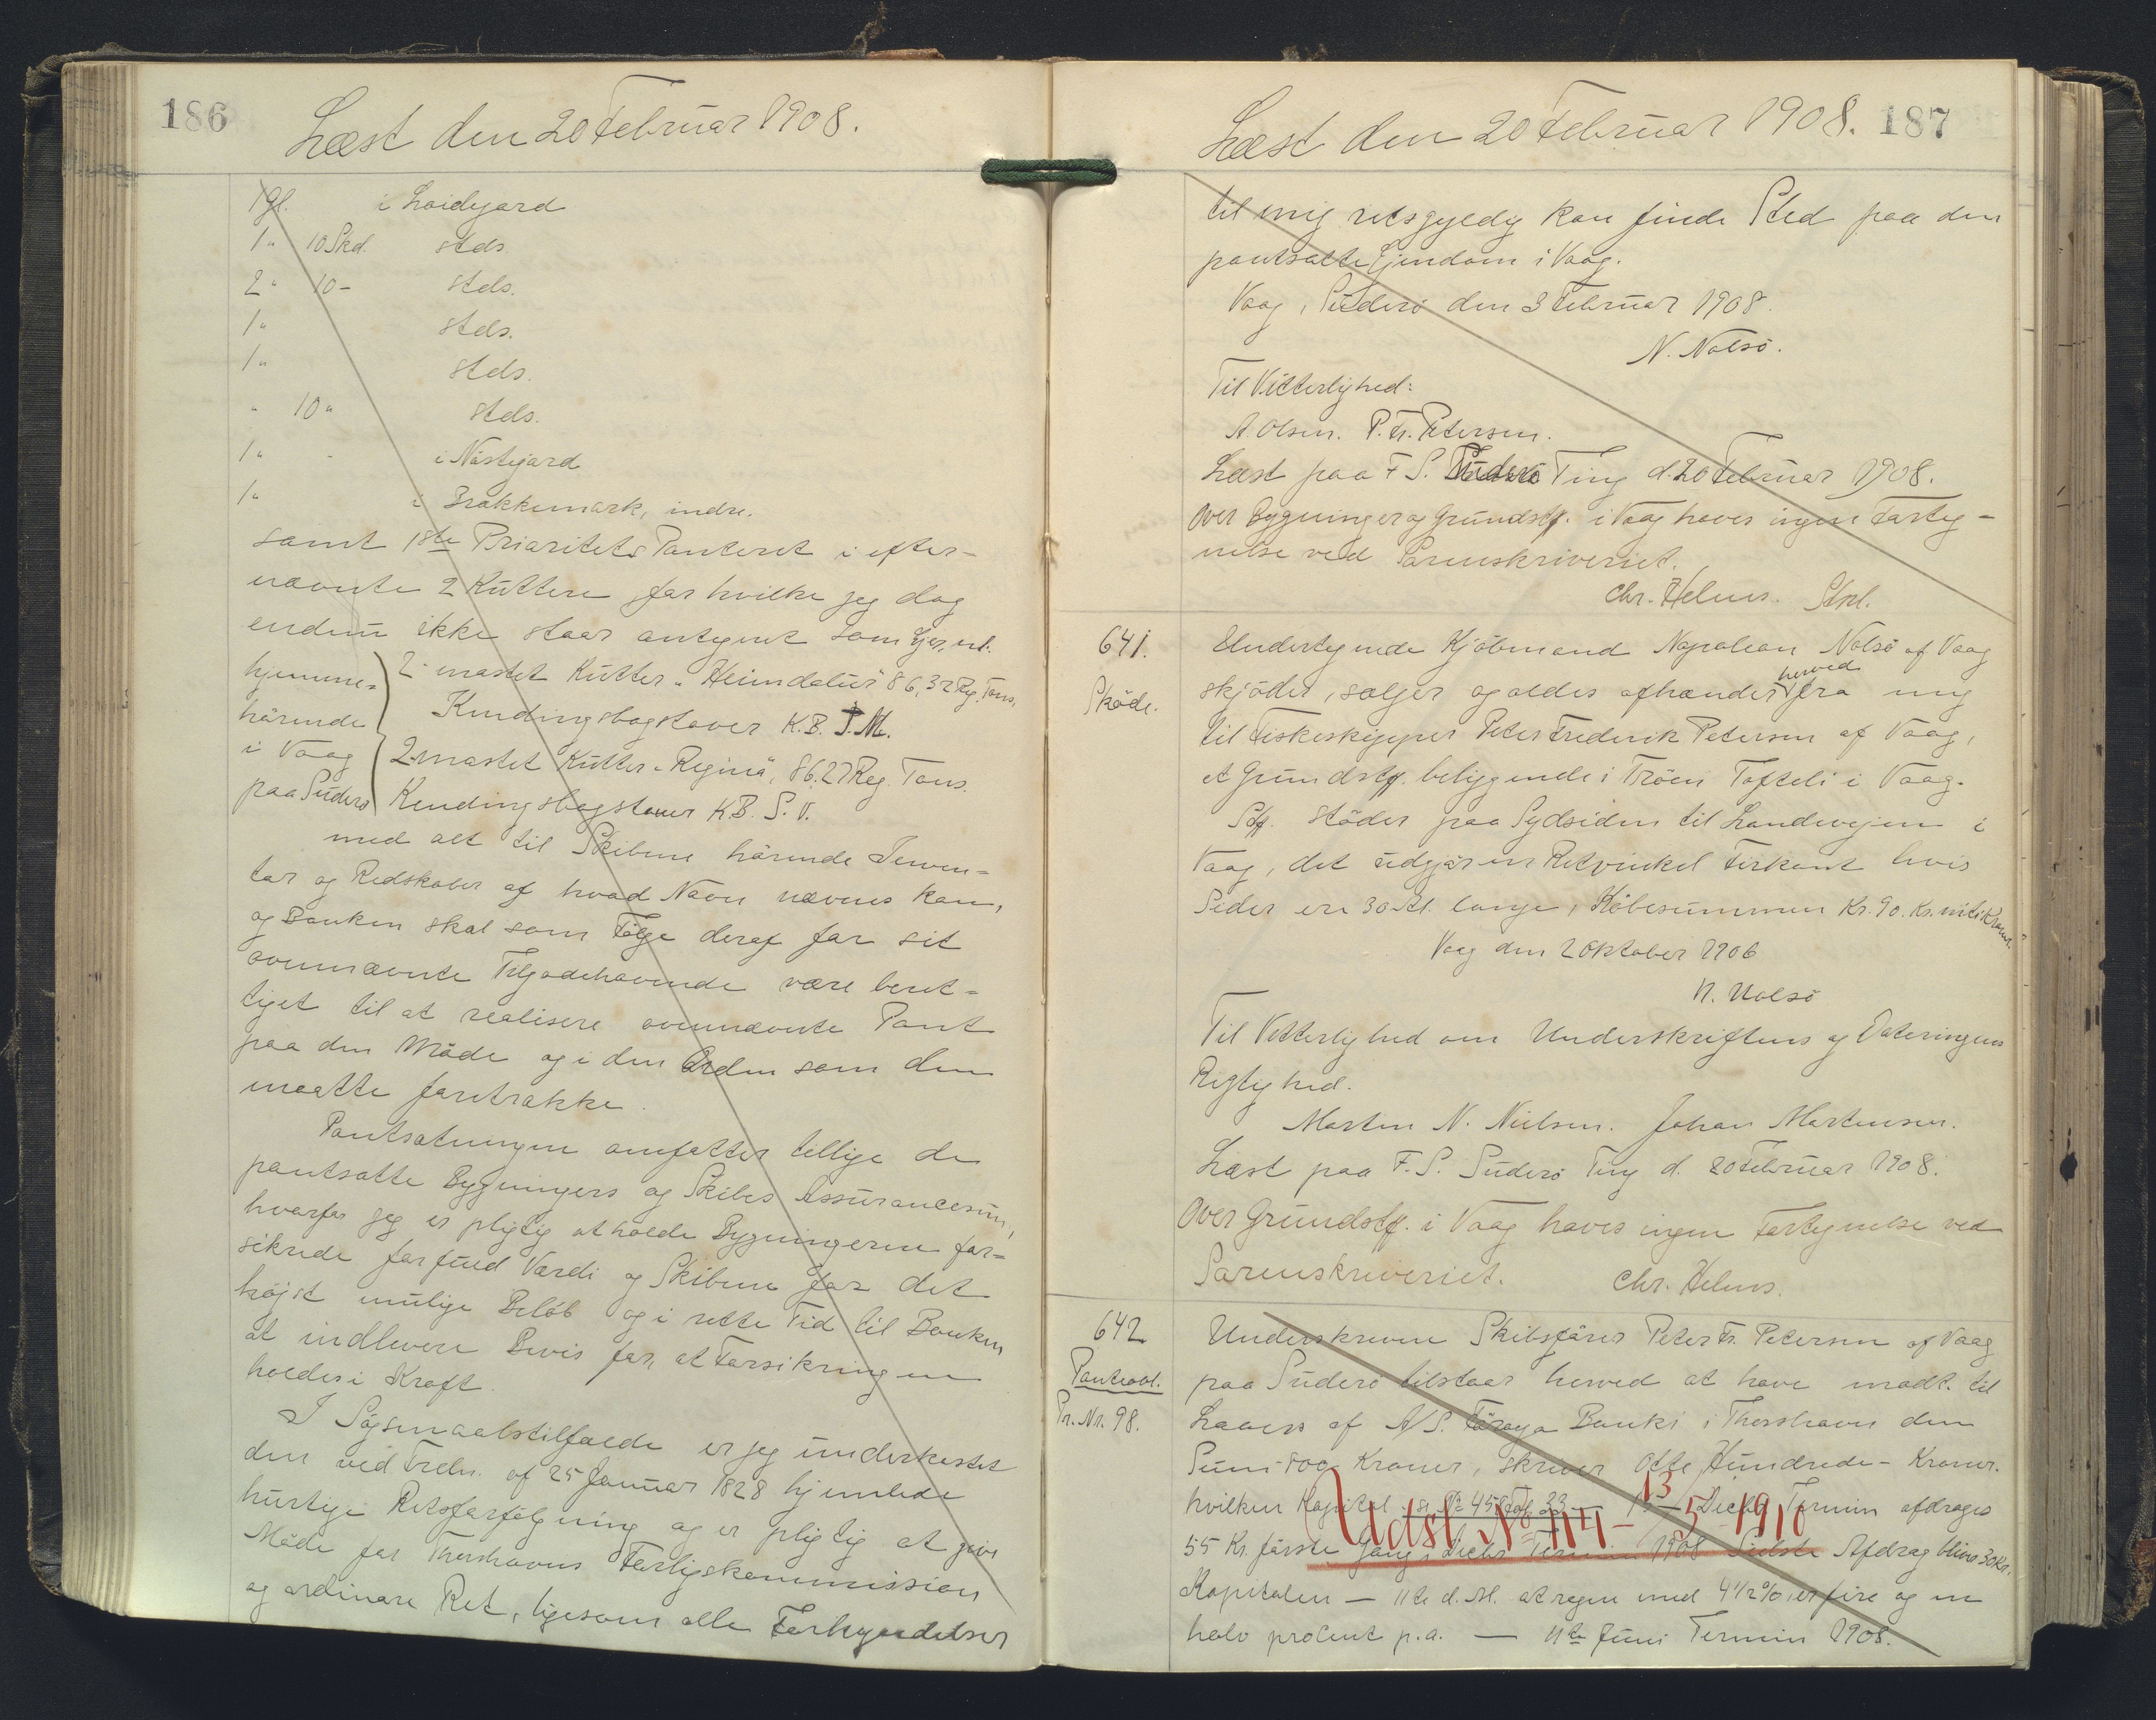 186
Læst den 20 Februar 1908.
1 gl. i Loidegard
1 " 10 Skd. stds
2 " 10 - stds.
1 " stds.
1 " stds.
" 10 " stds.
1 " - i Nástigard
1 " i Brakkemark, indre.
samt 1ste Prioritets Panteret i efter-
nævnte 2 Kuttere for hvilke jeg dog
endnu ikke staar antegnet som Ejer, nl.
hjemme-
hörende
i Vaag
paa Suderö
2-mastet Kutter "Heimdalur" 86,32 Reg. Tons,
Kendingsbogstaver K.B. J. M.
2-mastet Kutter "Regina", 86.27 Reg. Tons.
Kendingsbogstaver K.B. S. V.
med alt til Skibene hörende Inven-
tar og Redskaber af hvad Navn nævnes kan,
og Banken skal som Fölge deraf for sit
ovennævnte Tilgodehavende være beret-
tiget til at realisere ovennævnte Pant
paa den Maade og i den Orden som den
maatte foretrække.
Pantsætningen omfatter tillige de
pantsatte Bygningers og Skibes Assurancesum,
hvorfor jeg er pligtig at holde Bygningerne for-
sikrede for fuld Værdi og Skibene for det
höjst mulige Belöb og i rette Tid til Banken
at indlevere Bevis for, at Forsikringen
holdes i Kraft.
I Sögsmaalstilfælde er jeg underkastet
den ved Frdn. af 25 Januar 1828 hjemlede
hurtige Retsforfölgning og er pligtig at give
Möde for Thorshavns Forligskommission
og ordinære Ret, ligesom alle Forkyndelser
Læst den 20 Februar 1908. 187
til mig retsgyldig kan finde Sted paa den
pantsatte Ejendom i Vaag.
Vaag, Suderö den 3 Februar 1908.
N. Nolsö.
Til Vitterlighed:
A. Olsen. P. Fr. Petersen.
Læst paa F. S. Suderö Ting d. 20 Februar 1908.
Over Bygninger og Grundstk. i Vaag haves ingen Forteg-
nelse ved Sorenskriveriet.
Chr. Helms. Stkl.
641.
Skøde.
Undertegnede Kjöbmand Napoleon Nolsö af Vaag
skjöder, sælger og aldes afhænder herved fra mig
til Fiskeskipper Peter Frederik Petersen af Vaag,
et Grundstk. beliggende i Tröen Tofteli i Vaag.
Stk. stöder paa Sydsiden til Landevejen i
Vaag, det udgjör en Retvinkel Firkant hvis
Sider ere 30 Al. lange, Köbesummen Kr. 90. Kr. niti Kroner.
Vaag den 2 Oktober 1906
N. Nolsö
Til Vitterlighed om Underskriftens og Dateringens
Rigtighed.
Morten N. Nielsen. Johan Mortensen.
Læst paa F. S. Suderö Ting d. 20 Februar 1908.
Over Grundstk. i Vaag haves ingen Fortegnelse ved
Sorenskriveriet. Chr. Helms.
642
Panteobl.
Pr. Nr. 98.
Underskrevne Skibsförer Peter Fr. Petersen af Vaag
paa Suderö tilstaar herved at have modt. til
Laans af A/S. Föroya Banki i Thorshavn den
Sum 800 Kroner, skriver Otte Hundrede - Kroner.
hvilken Kapital Decbr. Termin afdrages
Udsl. № 114 - 13/5 - 1910
55 Kr. förste Gang i Decbr. Termin 1908 Sidste Afdrag blive 30 Kr.
Kapitalen - 11te d. M. at regne med 4 1/2 %, er fire og en
halv procent p. a. - 11te Juni Termin 1908.